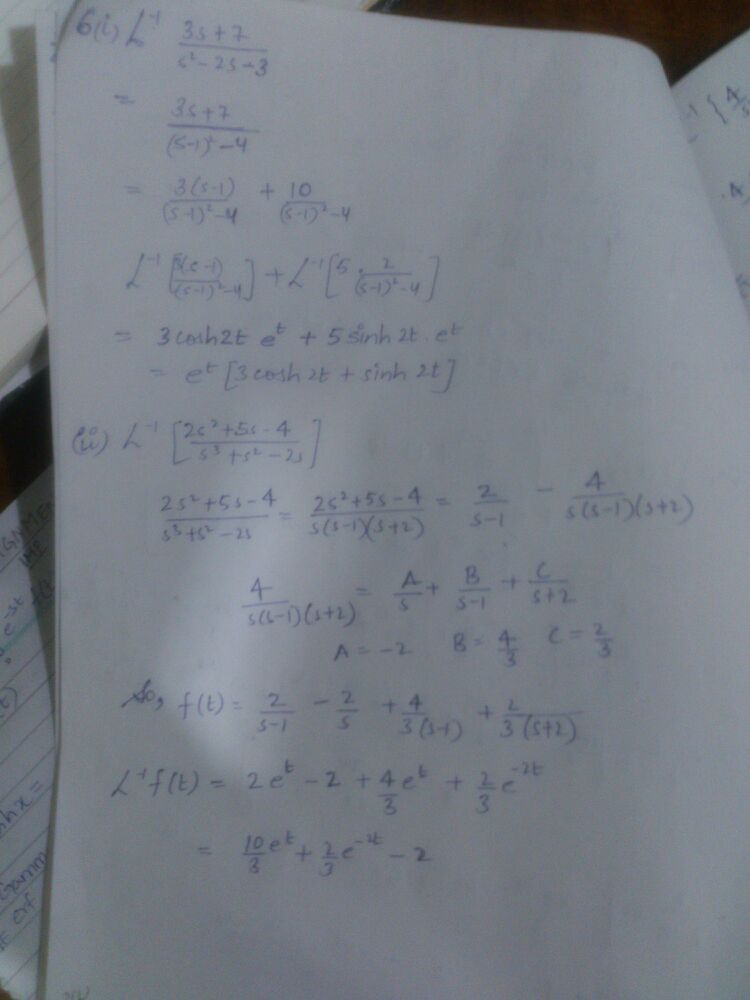 6(i) L⁻¹ (3s+7)/(s²-2s-3)
= (3s+7)/((s-1)²-4)
= 3(s-1)/((s-1)²-4) + 10/((s-1)²-4)
L⁻¹ [3(s-1)/((s-1)²-4)] + L⁻¹ [5 · 2/((s-1)²-4)]
= 3cosh2t eᵗ + 5 sinh 2t. eᵗ
= eᵗ [3 cosh 2t + sinh 2t]
(ii) L⁻¹ [(2s²+5s-4)/(s³+s²-2s)]
(2s²+5s-4)/(s³+s²-2s) = (2s²+5s-4)/(s(s-1)(s+2)) = 2/(s-1) - 4/(s(s-1)(s+2))
4/(s(s-1)(s+2)) = A/s + B/(s-1) + C/(s+2)
A = -2 B = 4/3 C = 2/3
So, f(t) = 2/(s-1) - 2/s + 4/(3(s-1)) + 2/(3(s+2))
L⁻¹f(t) = 2eᵗ - 2 + 4/3 eᵗ + 2/3 e⁻²ᵗ
= 10/3 eᵗ + 2/3 e⁻²ᵗ - 2